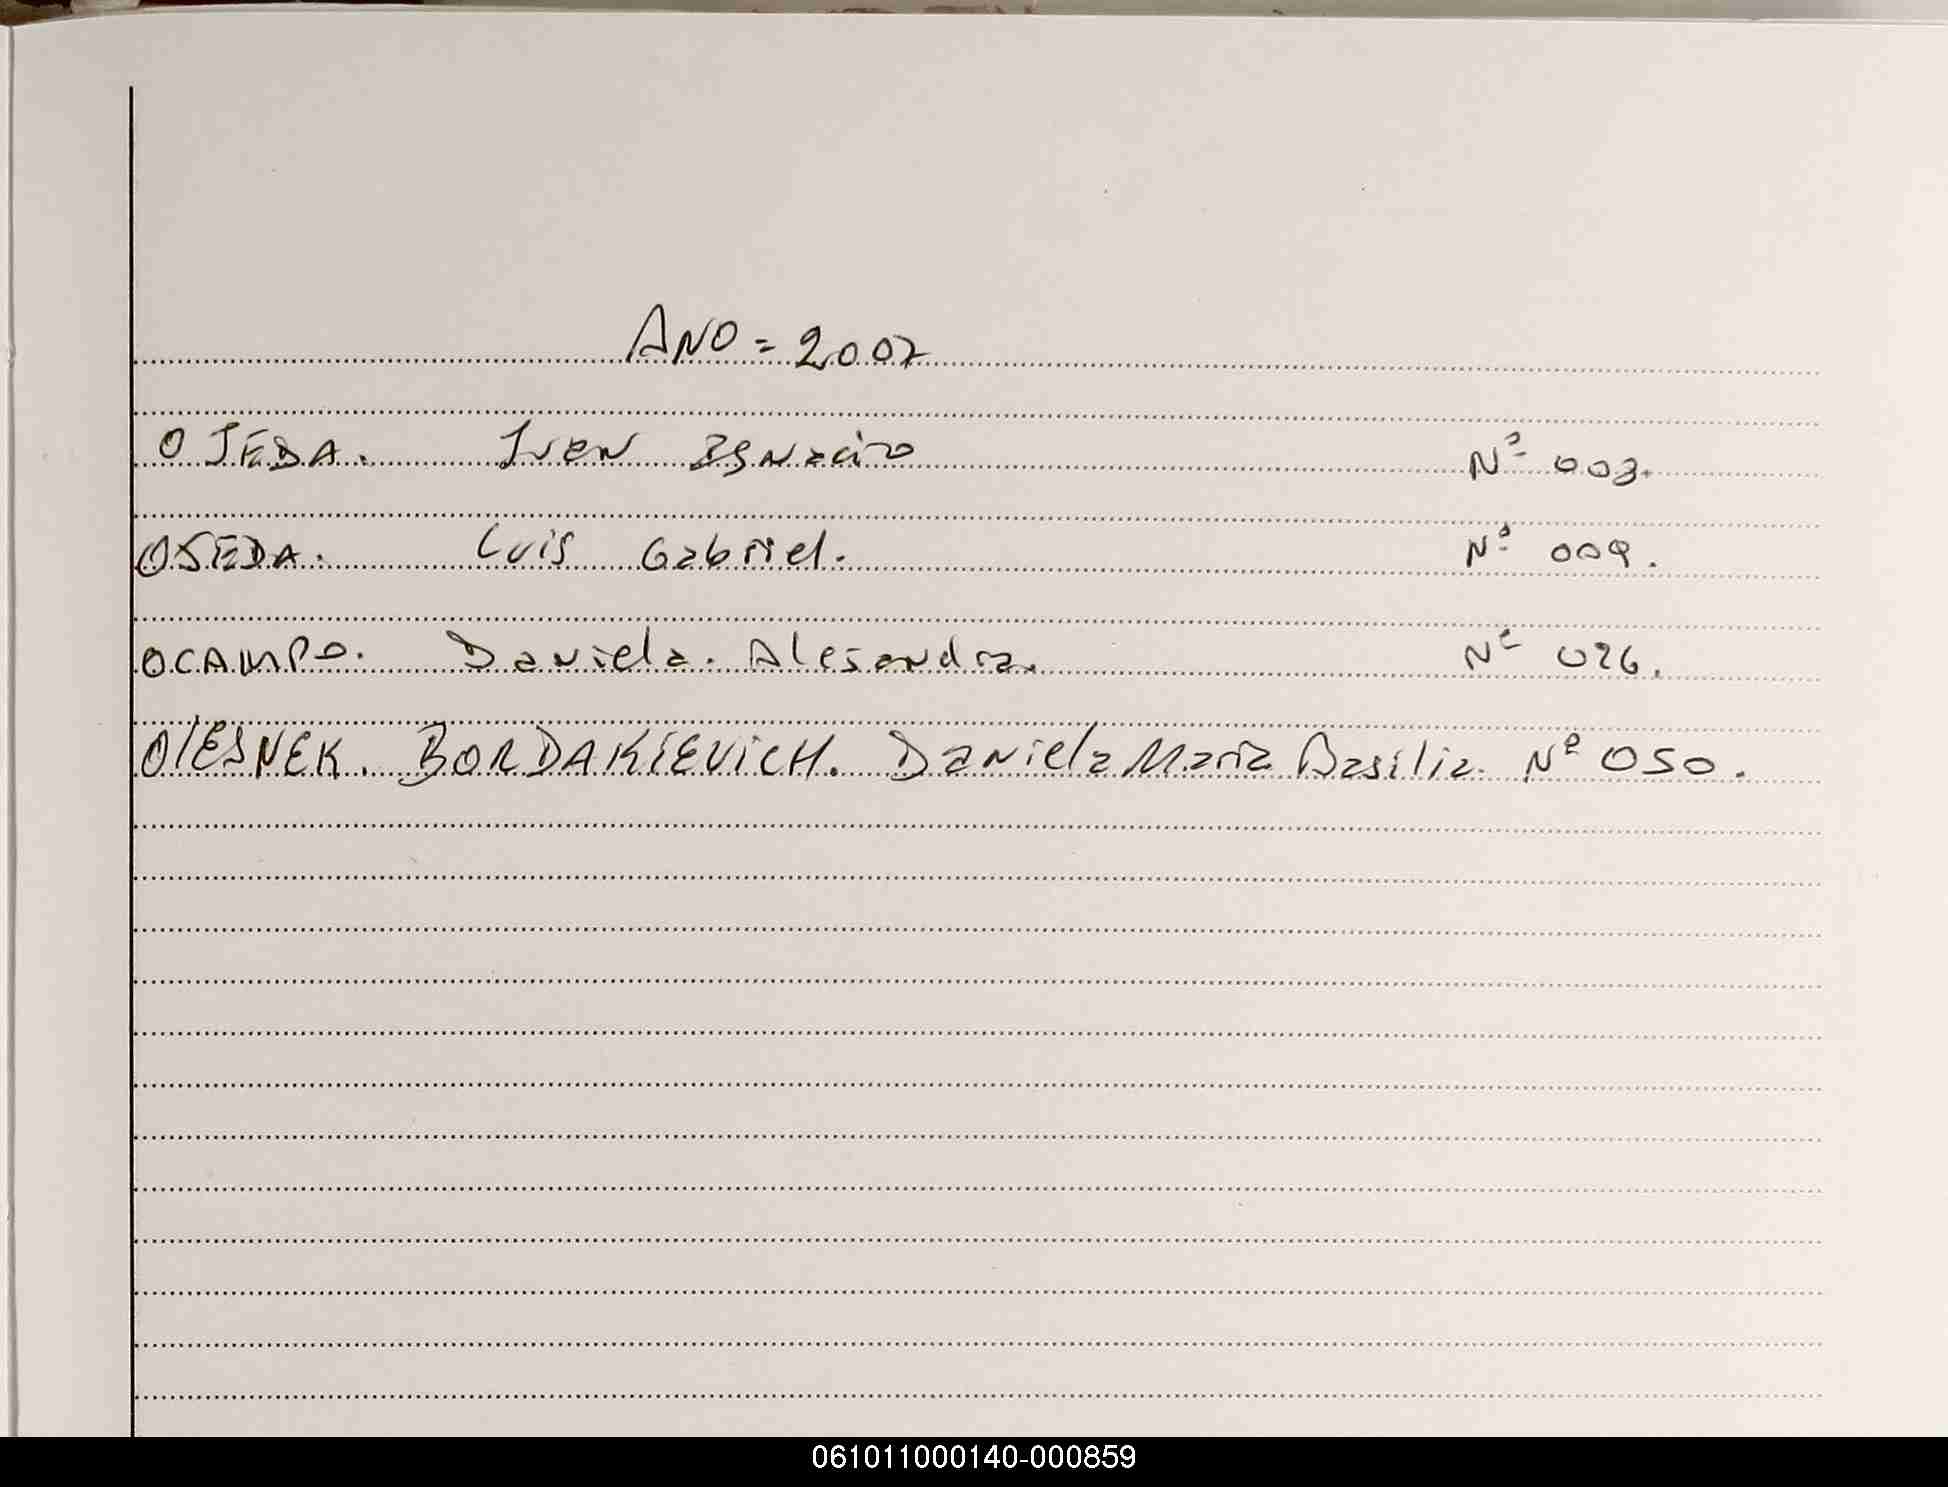 ANO = 2007
OJEDA. Iven Ignacio Nº 003.
OJEDA. Luis Gabriel. Nº 009.
OCAMPO. Daniela. Alejandra. Nº 026.
OlESNEK. BORDAKIEVICH. Daniela Maria Basilia. Nº 050.
061011000140-000859